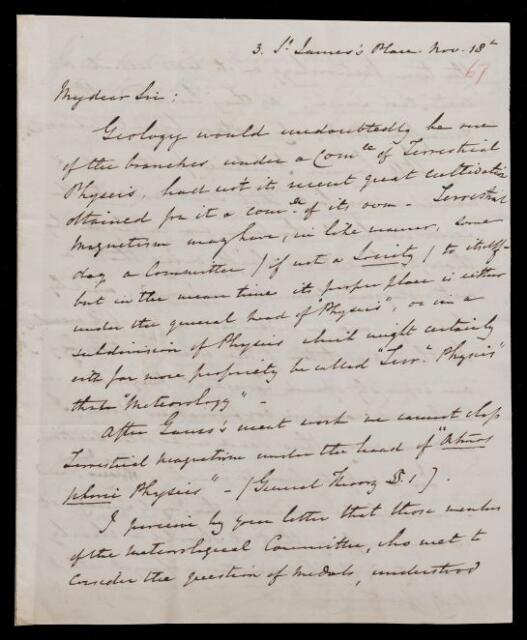 3. St James's Place Nov. 18th
67
My dear Sir;
Geology would undoubtedly be one
of the branches under a Comtee of Terrestrial
Physics, had not its recent great cultivation
obtained for it a comtee of its own - Terrestrial
Magnetism may have, in like manner, some
day a Committee (if not a Society) to itself -
but in the mean time its proper place is either
under the general head of "Physics", or in a
subdivision of Physics which might certainly
with far more propriety be called "Terrl Physics"
than "Meteorology" -
After Gauss's recent work we cannot class
Terrestrial magnetism under the head of "Atmos
pheric Physics" - (General Theory §.1).
I perceive by your letter that those members
of the meteorological Committee, who met to
consider the question of medals, understood